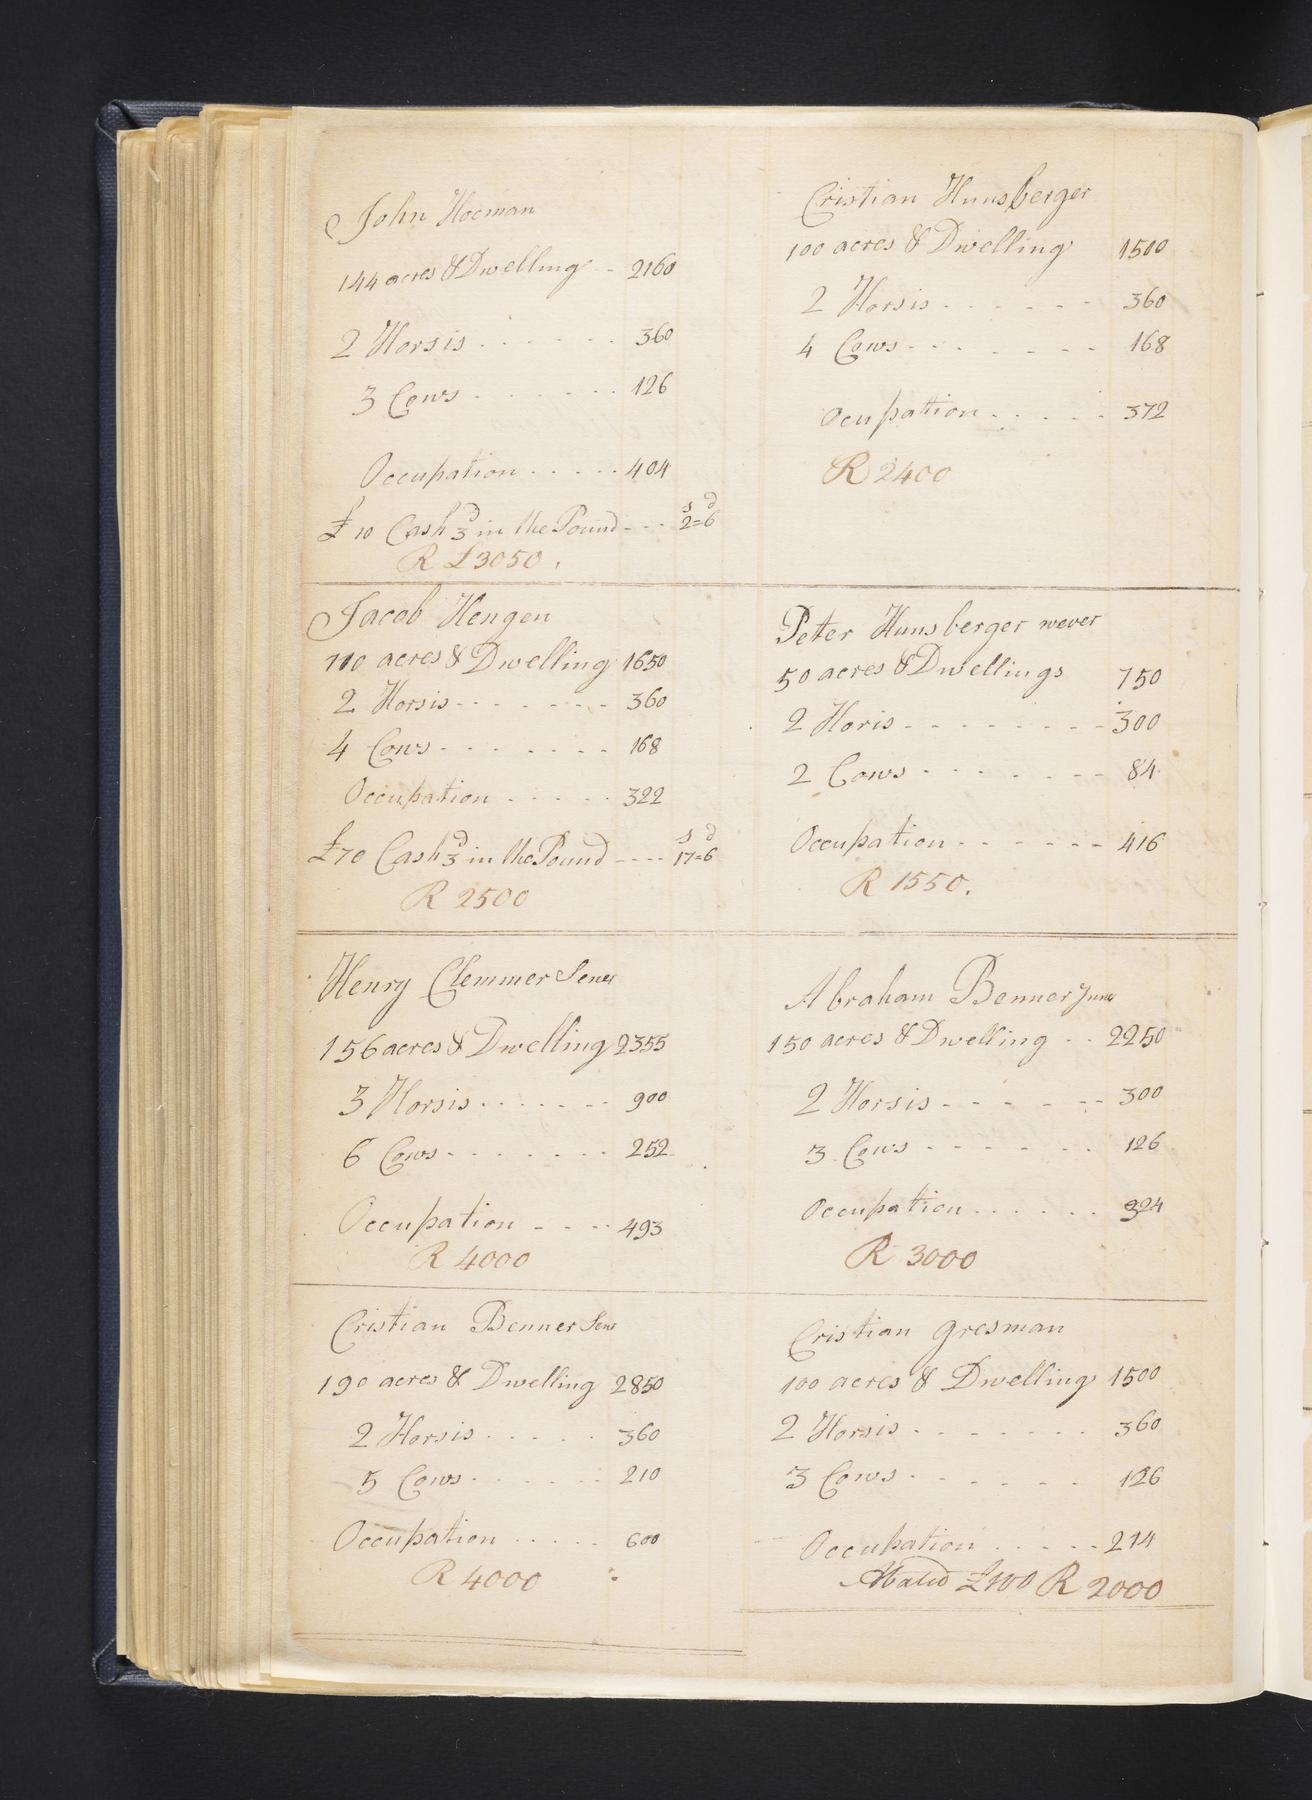 John Hocman
144 acres & Dwelling - 2160
2 Horsis . . . . . . 360
3 Cows . . . . . . 126
Occupation . . . . . 404
£10 Cash 3d in the Pound - - - 2s=6d
R £3050.
Jacob Hengen
110 acres & Dwelling 1650
2 Horsis - - - - - - - 360
4 Cows - - - - - - - 168
Occupation . . . . . 322
£70 Cash 3d in the Pound - - - - 17s=6d
R 2500
Henry Clemmer Sener
156 acres & Dwelling 2355
3 Horsis . . . . . . . 900
6 Cows - - . . . . . . 252
Occupation - - - - 493
R 4000
Cristian Benner Sene
190 acres & Dwelling 2850
2 Horsis . . . . . 360
5 Cows . . . . . . 210
Occupation . . . . . 600
R 4000
Cristian Hunsberger
100 acres & Dwelling 1500
2 Horsis . . . . - - 360
4 Cows - - - - - - - 168
Ocupation . . . . . 372
R 2400
Peter Hunsberger wever
50 acres & Dwellings 750
2 Horis - - - - - - - - 300
2 Cows - - - - - - - 84
Occupation - - - - - - 416
R 1550.
Abraham Benner June
150 acres & Dwelling - - 2250
2 Horsis - - - - - - - 300
3 Cows - - - - - - 126
Occupation . . . . . . 324
R 3000
Cristian Gresman
100 acres & Dwelling 1500
2 Horsis . . . . . . . 360
3 Cows - - - - - - 126
Occupation . . . . . 214
Abated £100 R 2000